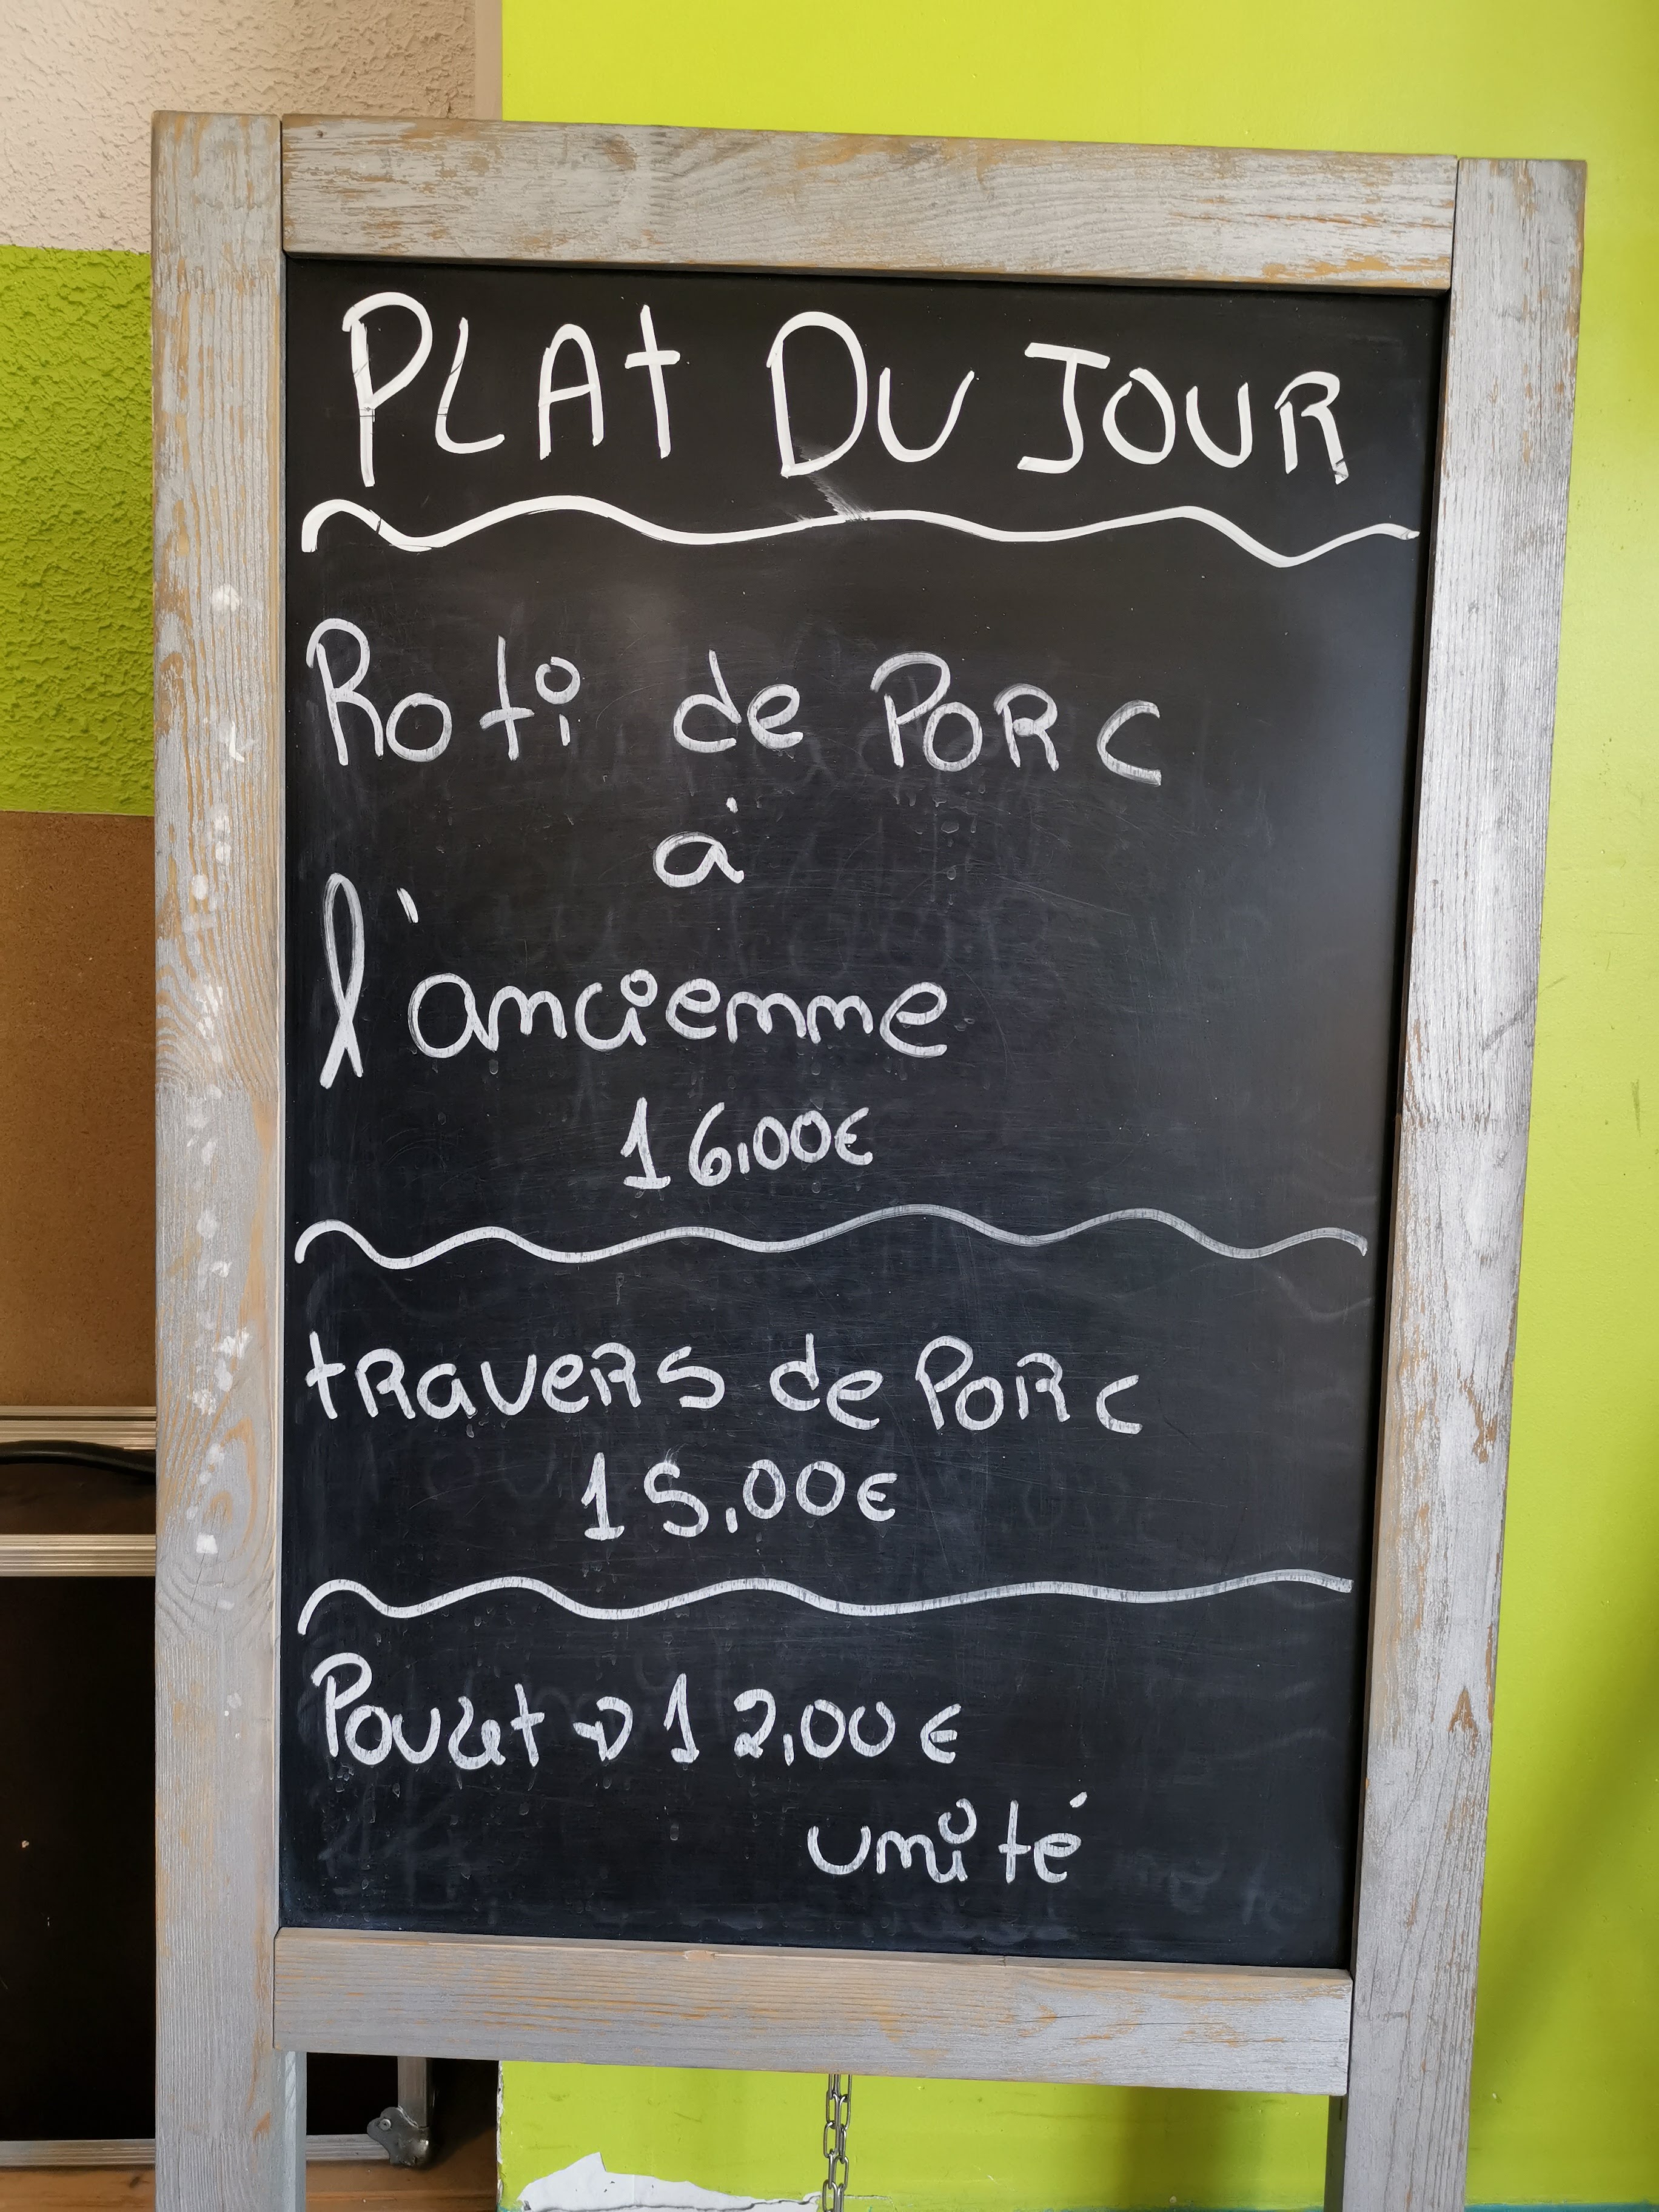 PLAT DU JOUR
Roti de PORC
à
l'ancienne
16,00€
tRaveRs de PoRc
15,00€
Poulet → 12,00€
unité